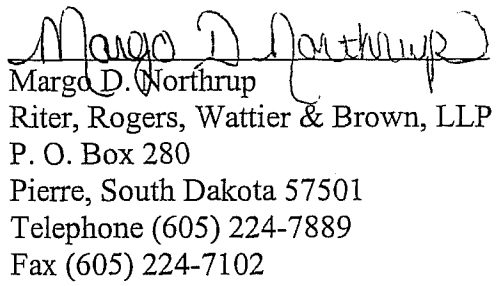 Margo D Northrup
Margo D. Northrup
Riter, Rogers, Wattier & Brown, LLP
P. O. Box 280
Pierre, South Dakota 57501
Telephone (605) 224-7889
Fax (605) 224-7102